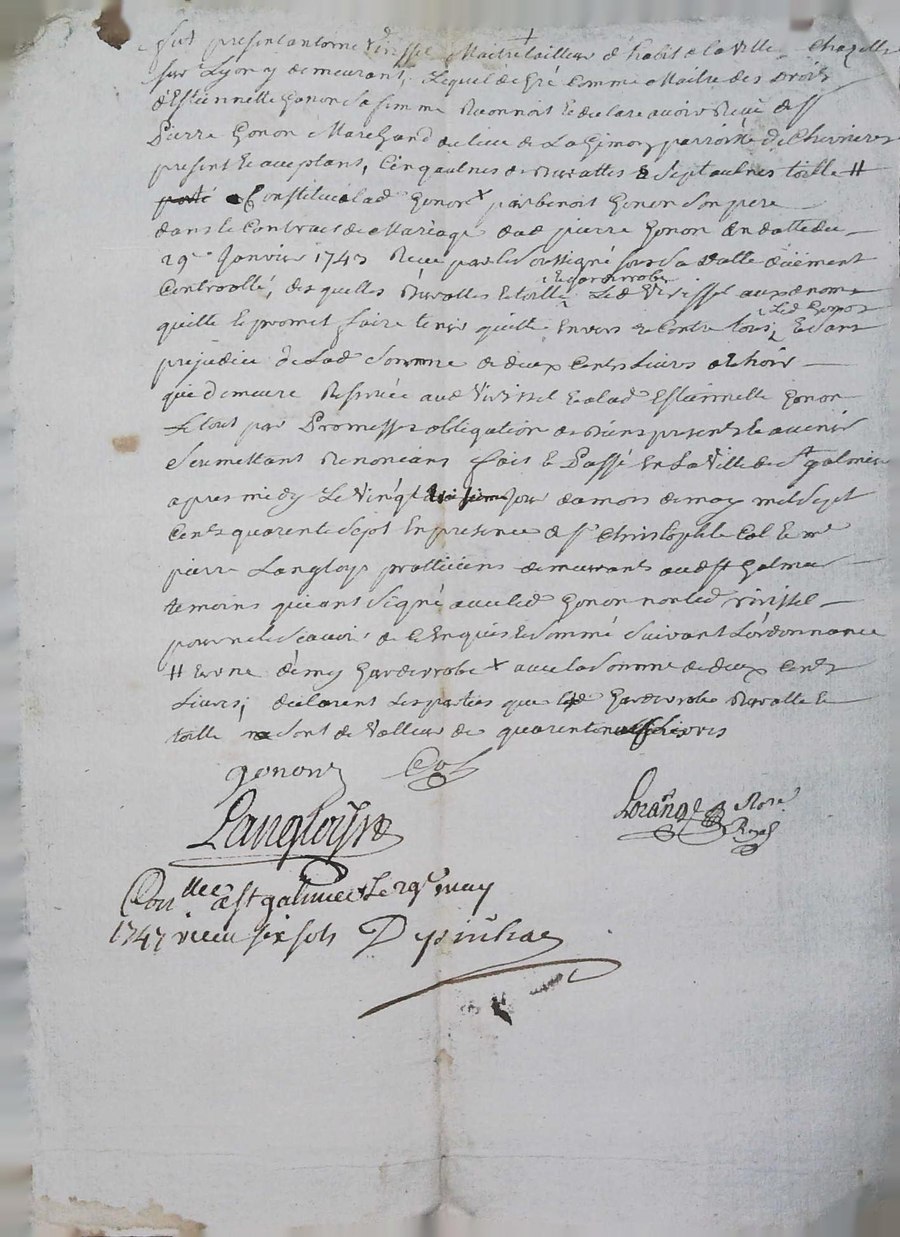 fut present antoine Virissel Maitre tailleur d'habit de la ville Chazelle
sur Lyon y demeurant, Lequel de gré Comme Maitre des Droits
d'Estiennette Gonon sa femme Reconnoit et declare avoir Reçu de sr
Pierre Gonon Marchand du lieu de La Gimon parroisse de Chevrieres
present et acceptant, Cinq aulnes de Rattes & Sept aulnes toille #
porté Constitué a lad Gonon x par benoit Gonon Son pere
dans le Contract de Mariage dud pierre Gonon en datte du
29e Janvier 1743 Reçu par le Soussigné sous sa datte düement
Controollé, des quelles et toille et garderrobe Led Virissel auxd noms
quitte et promet faire tenir quitte Envers et Contre tous, led Gonon et sans
prejudice de Lad Somme de deux Cents Livres
qui demeure Reservée aud Virissel et a lad Estiennette Gonon
Le tout par Promesse obligation de Biens presents et avenir
Soumettant Renonceans fait et Passé En La Ville de St galmier
apres midy Le Vingt jour du mois de may mil Sept
Cents quarente Sept En presence de sr Christophle Col et me
pierre Langloys pratticiens demeurants aud St Galmier
temoins qui ont Signé avec led Gonon non led Virissel
pour ne le Scavoir de ce Enquis et Sommé Suivant L'ordonnance
# et une demy Garderrobe x avec la Somme de deux Cents
Livres; declarent Les parties que Garderrobe et
toille Sont de Valleur de quarente Livres
gonon Col
Langloys
Lorange Nore
Royal
Conllee a St galmier Le 29e may
1747 receu six sols